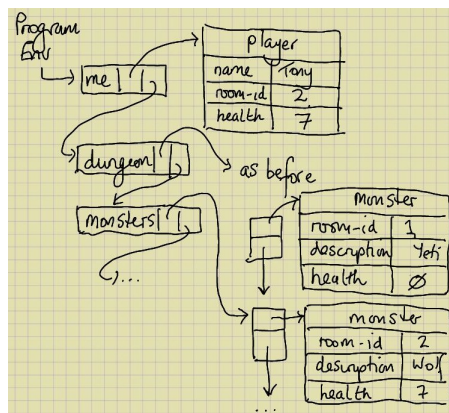 Program
Env
me
player
name Tony
room-id 2
health 7
dungeon
as before
monsters
...
monster
room-id 1
description Yeti
health Ø
monster
room-id 2
description Wolf
health 7
...